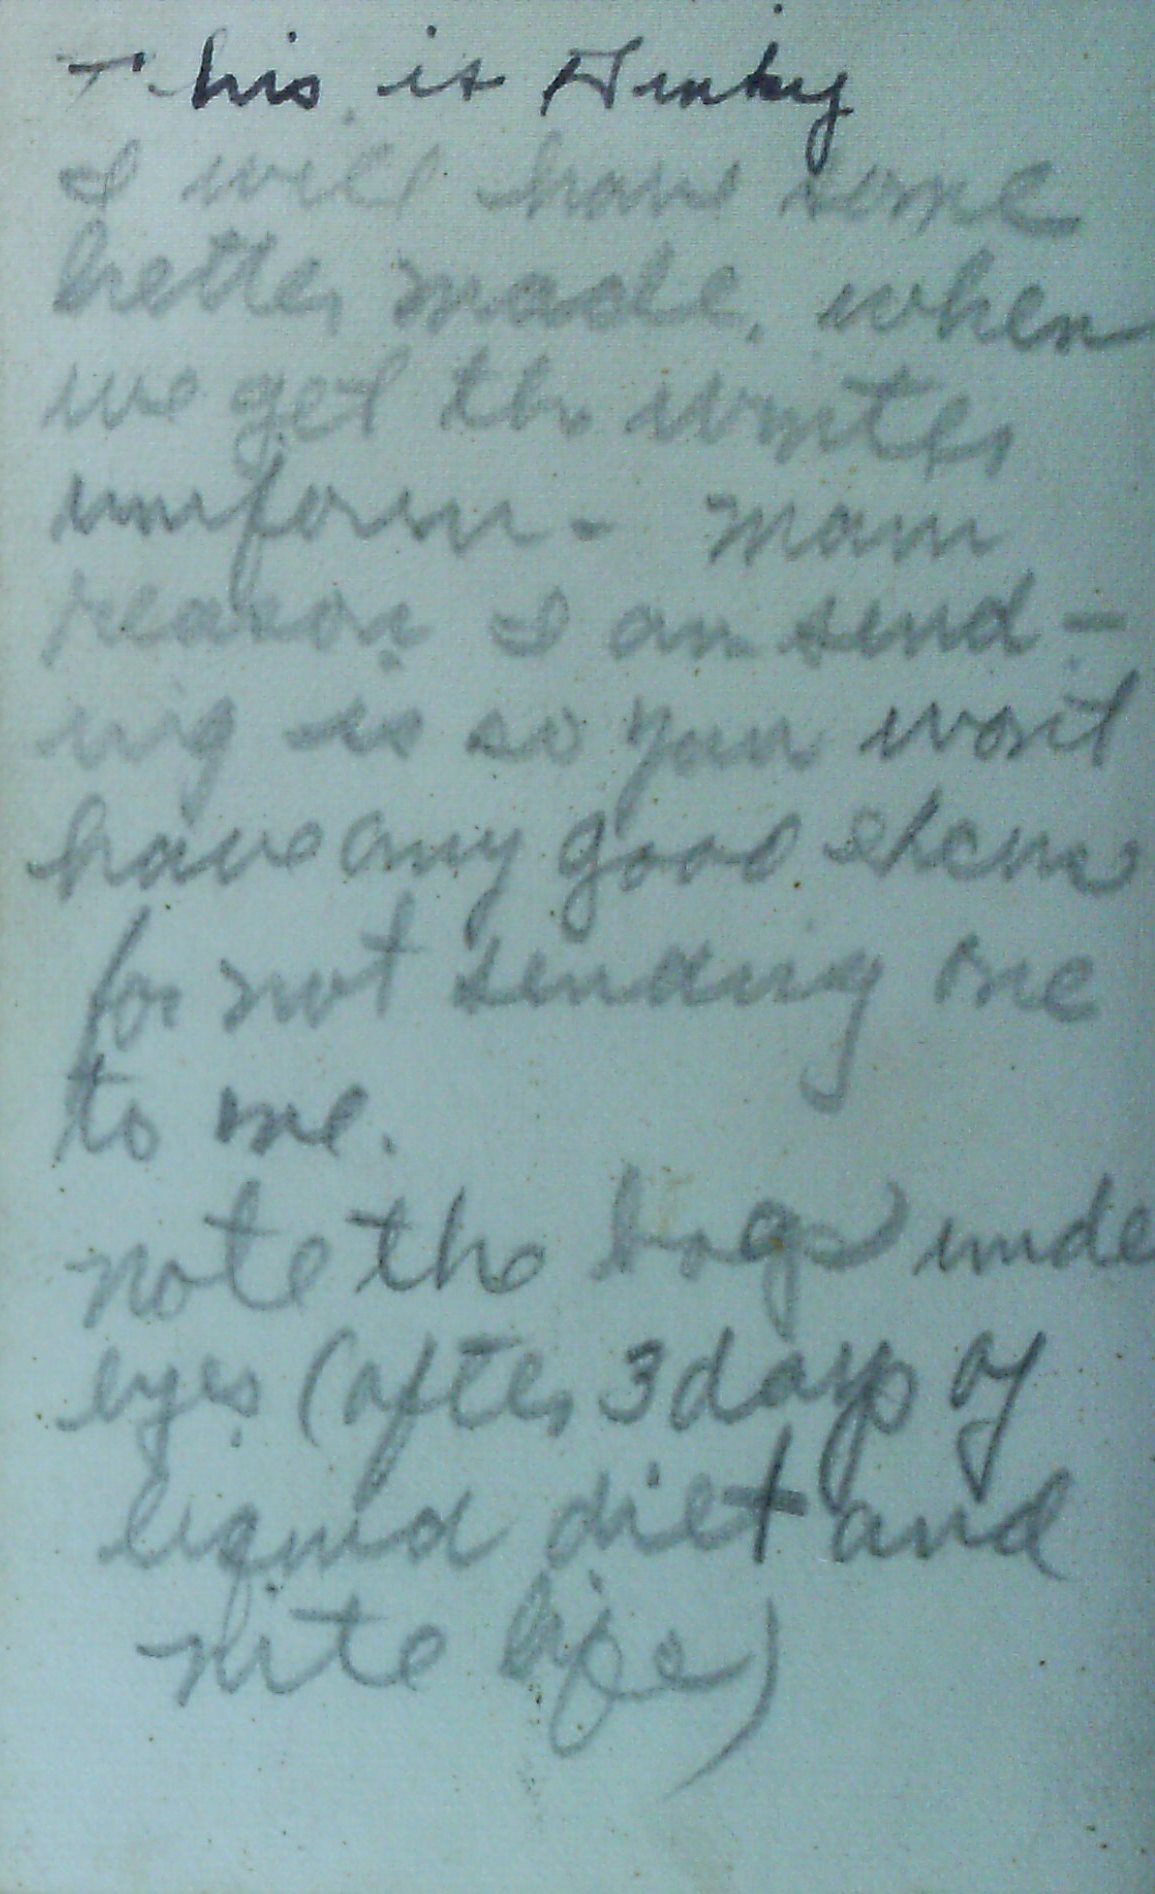 This is Hinky
I will have some
better made, when
we get the winter
uniform - Main
reason I am send -
ing is so you won't
have any good excuse
for not sending one
to me.
note the bags unde
eyes (after 3 days of
liquid diet and
nite life)